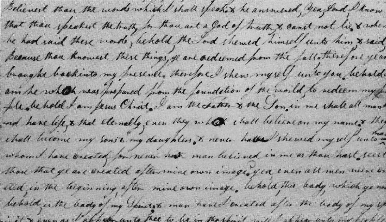 believest thou the words which I shall speak & he answered, Yea, Lord I know
that thou speakest the truth for thou art a God of truth & canst not lie & when
he had said these words, behold the Lord shewed himself unto him & said
Because thou knowest these things, ye are redeemed from the fall therefore ye are
brought back into my presence, therefore I shew myself unto you, behold I
am he who was prepared from the foundation of the world, to redeem my peo
ple, behold I am Jesus Christ, I am the Father & the Son, in me shall all man
kind have life, & that eternally, even they who shall believe on my name, & they
shall become my sons & my daughters, & never have I shewed myself unto man
whom I have created for never has man believed in me as thou hast, seest
thou that ye are created after mine own image, yea even all men were cre
ated, in the beginning after mine own image, behold this body which ye now
behold is the body of my spirit & man have I created after the body of my sp
it & even as I appear unto thee to be in the spirit will I appear unto my people